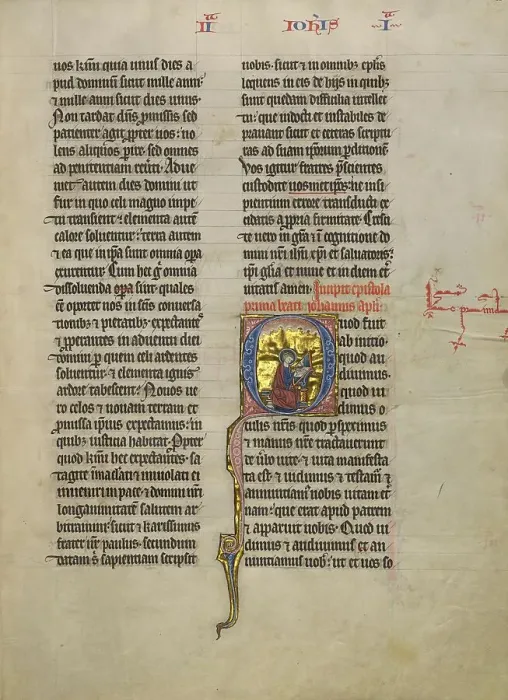 II IOHIS I
uos lateat hoc quia unus dies a
pud dominum sicut mille anni
⁊ mille anni sicut dies unus.
Non tardat dñs ꝓmissis sed
patienter agit ꝓpter uos: no
lens aliquos ꝑire. sed omnes
ad penitentiam reuerti. Adue
niet autem dies domini ut
fur in quo celi magno impe
tu transient ⁊ elementa autē
calore soluentur: terra autem
⁊ ea que in ip̄a sunt omnia oꝑa
exurentur. Cum hec gͦ omnia
dissoluenda oꝑa sint. quales
cē oportet nos in sc̄is conuersa
tionibꝫ ⁊ pietatibꝫ. expectantes
⁊ ꝓperantes in aduentū diei
domini ꝑ quem celi ardentes
soluentur ⁊ elementa ignis
ardore tabescent. Nouos ue
ro celos ⁊ nouam terram et
ꝓmissa ip̄ius expectamus: in
quibꝫ iusticia habitat. Ꝓpter
quod kmi hec expectantes. sa
tagite īmaclati ⁊ inuiolati ei
inueniri in pace. ⁊ domini nr̄i
longanimitatē salutem ar
bitramini: sicut ⁊ karissimus
frater nr̄ paulus. secundum
datam sͥ sapientiam scripsit
uobis. sicut ⁊ in omnibꝫ epl̄is
loquens in eis de hijs in quibꝫ
sunt quedam difficilia intellec
tu: que indocti et instabiles de
prauant sicut et ceteras scriptu
ras ad suam ip̄orum ꝑditionē.
Vos igitur fratres p̄scientes
custodite uosmetip̄os: ne insi
pientium errore transducti ex
cidatis a ꝓpria firmitate. Cresci
te uero in gr̄a ⁊ ī cognitione do
mini nr̄i ih̄u xp̄i et saluatoris:
ip̄i gl̄ia et nunc et in diem et
nitatis amen. Incipit epistola
prima beati iohannis apl̄i.
Quod fuit
ab inicio.
quod au
diuimus.
quod ui
dimus o
culis nr̄is quod ꝑspeximus
⁊ manus nr̄e tractauerunt
de ūbo uite. ⁊ uita manifesta
ta est. ⁊ uidimus ⁊ testam̄ ⁊
annuntiam̄ nobis uitam et
nam: que erat apud patrem
⁊ apparuit nobis. Quod ui
dimus ⁊ audiuimus et an
nuntiamus uob̄: ut et uos so